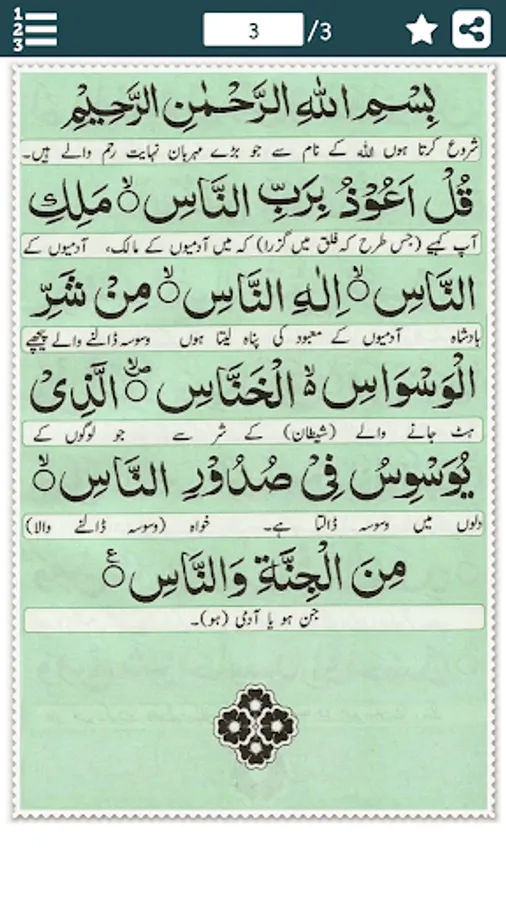 1
2
3
3 /3
بِسْمِ اللهِ الرَّحْمٰنِ الرَّحِيْمِ
شروع کرتا ہوں اللہ کے نام سے جو بڑے مہربان نہایت رحم والے ہیں۔
قُلْ اَعُوْذُ بِرَبِّ النَّاسِ ۙ مَلِكِ
آپ کہیے (جس طرح کہ فلق میں گزرا) کہ میں آدمیوں کے مالک، آدمیوں کے
النَّاسِ ۙ اِلٰهِ النَّاسِ ۙ مِنْ شَرِّ
بادشاہ آدمیوں کے معبود کی پناہ لیتا ہوں وسوسہ ڈالنے والے پیچھے
الْوَسْوَاسِ ۙ الْخَنَّاسِ ۪ۙ الَّذِىْ
ہٹ جانے والے (شیطان) کے شر سے جو لوگوں کے
يُوَسْوِسُ فِىْ صُدُوْرِ النَّاسِ ۙ
دلوں میں وسوسہ ڈالتا ہے۔ خواہ (وسوسہ ڈالنے والا)
مِنَ الْجِنَّةِ وَالنَّاسِ ۠
جن ہو یا آدمی (ہو)۔